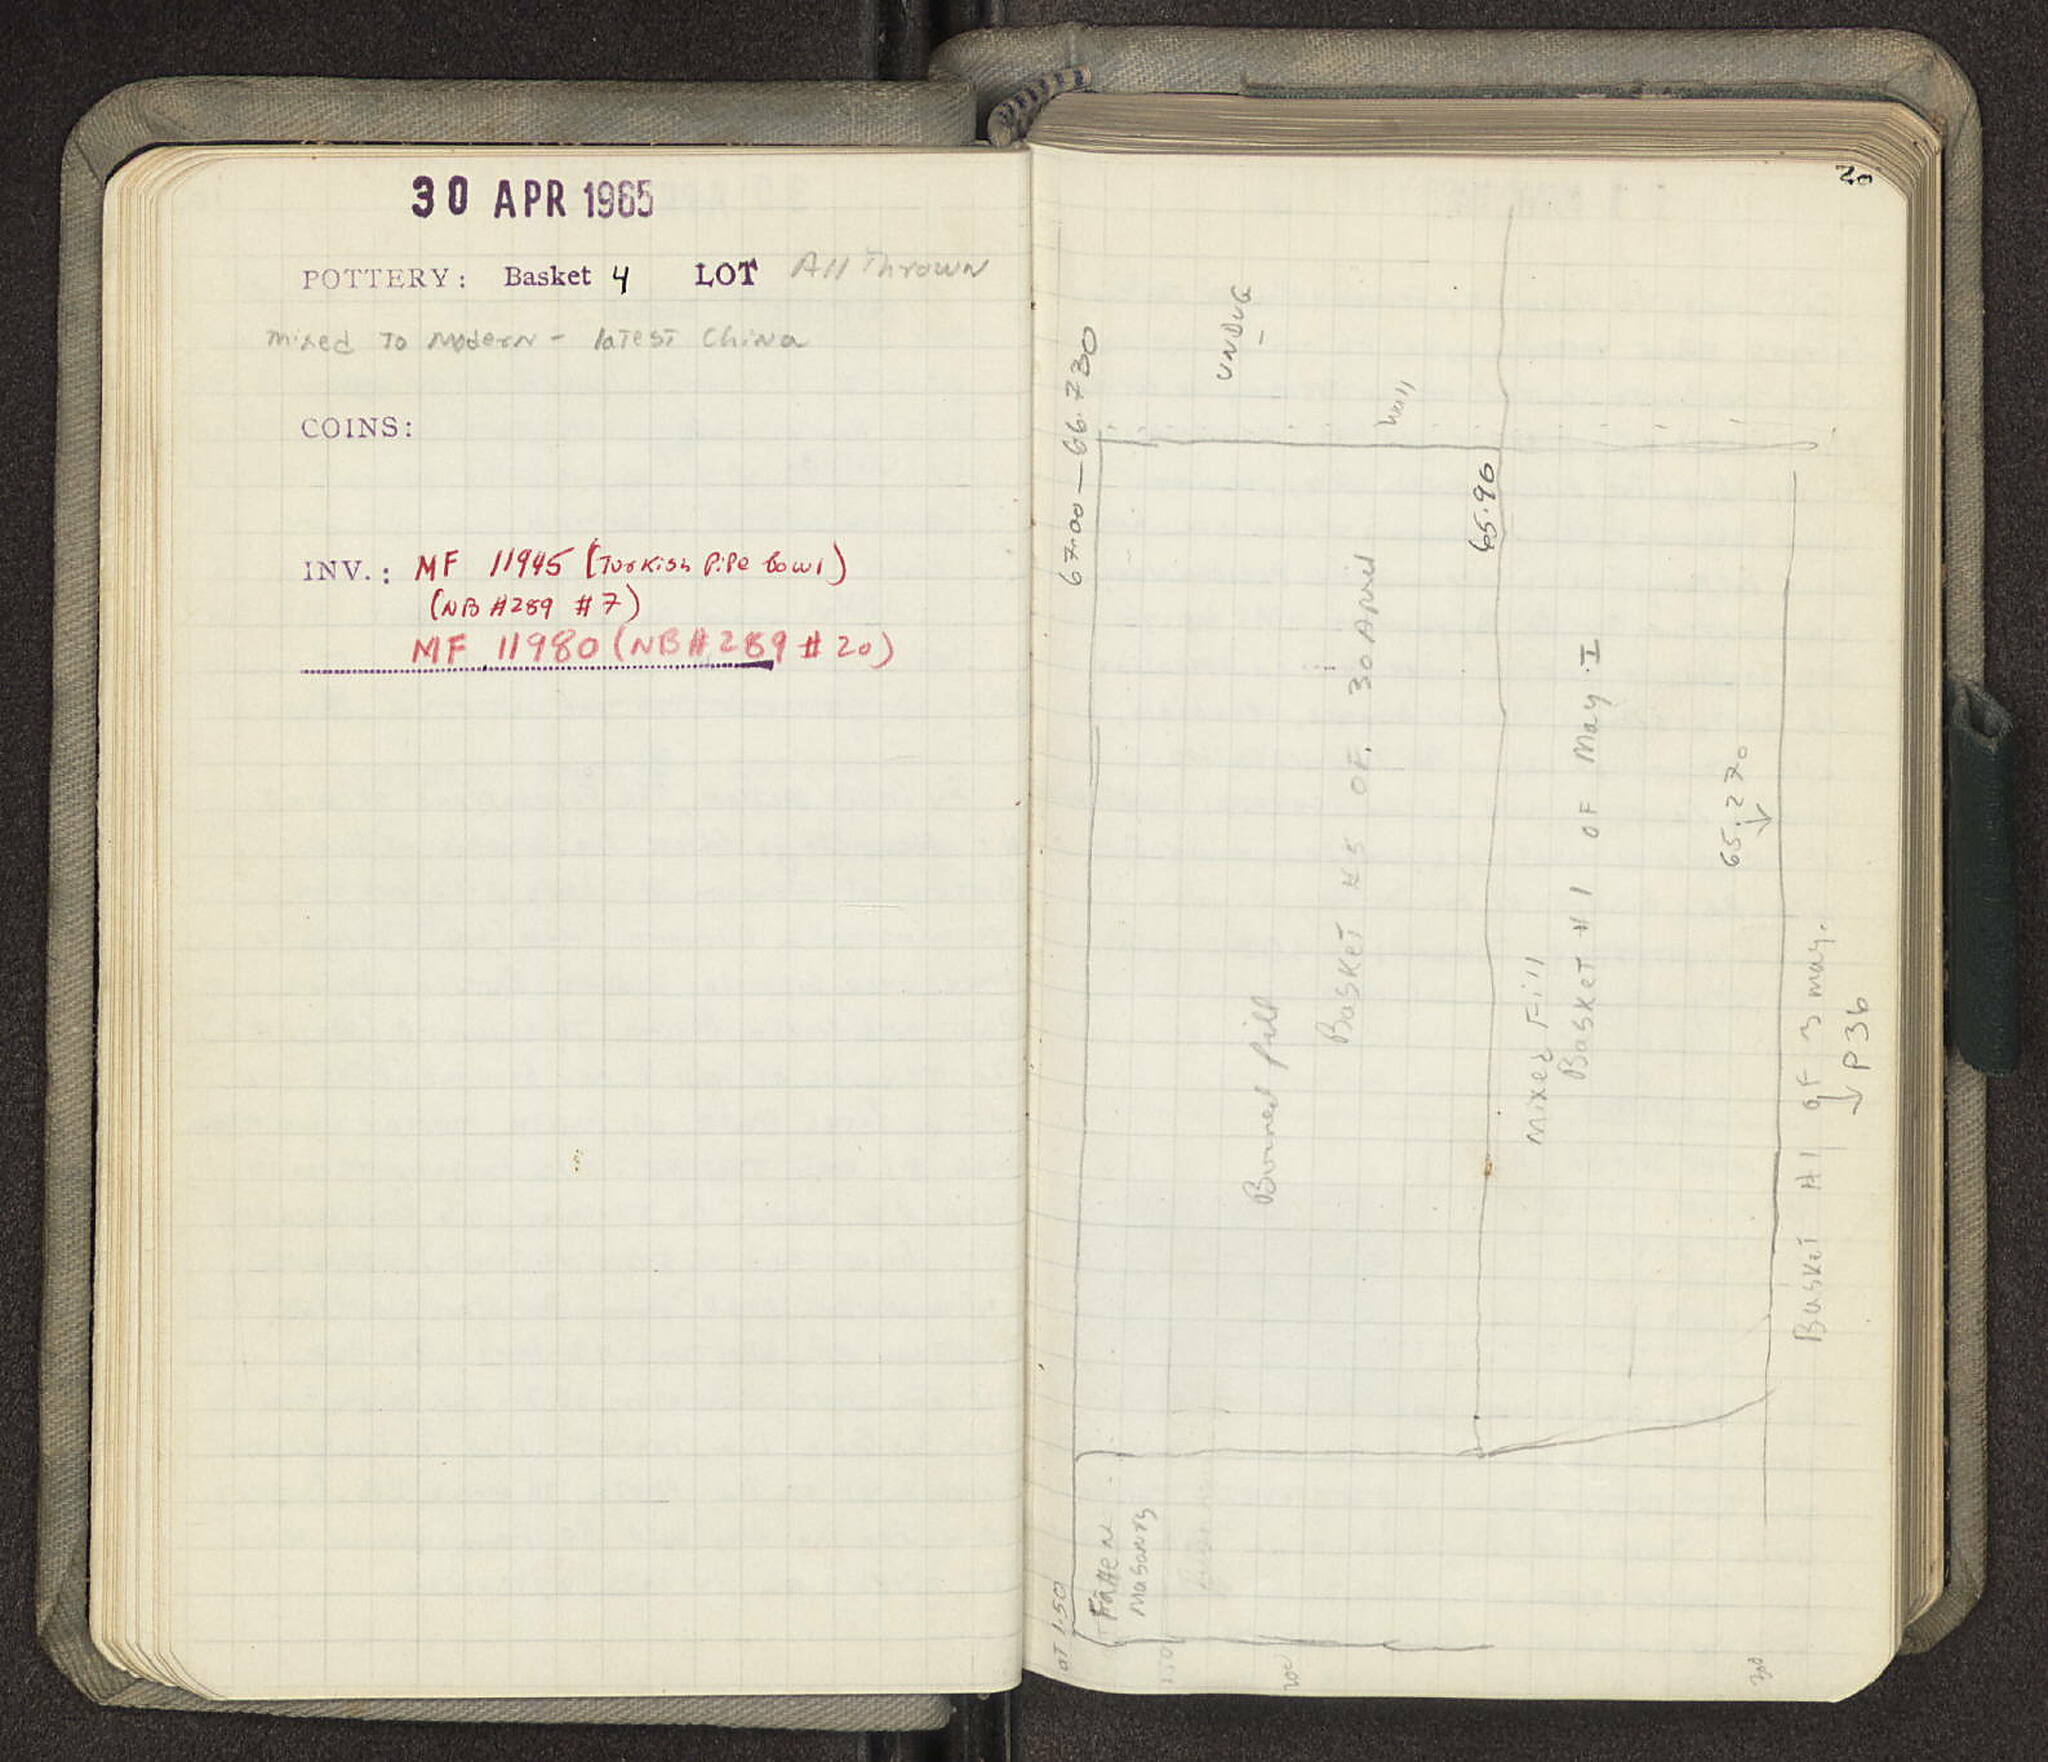 30 APR 1965
POTTERY: Basket 4 LOT All Thrown
mixed To Modern - latest China
COINS:
INV.: MF 11945 (Turkish Pipe bowl)
(NB #289 #7)
MF 11980 (NB #289 #20)
20
67.00 — 66.730
UNDUG
Wall
65.96
Burned fill
Basket #5 OF. 30 April
Mixed Fill
Basket #1 OF May. I
65.270
Basket #1 OF 3 may.
P 36
Fallen
Masonry
at 1.50
200